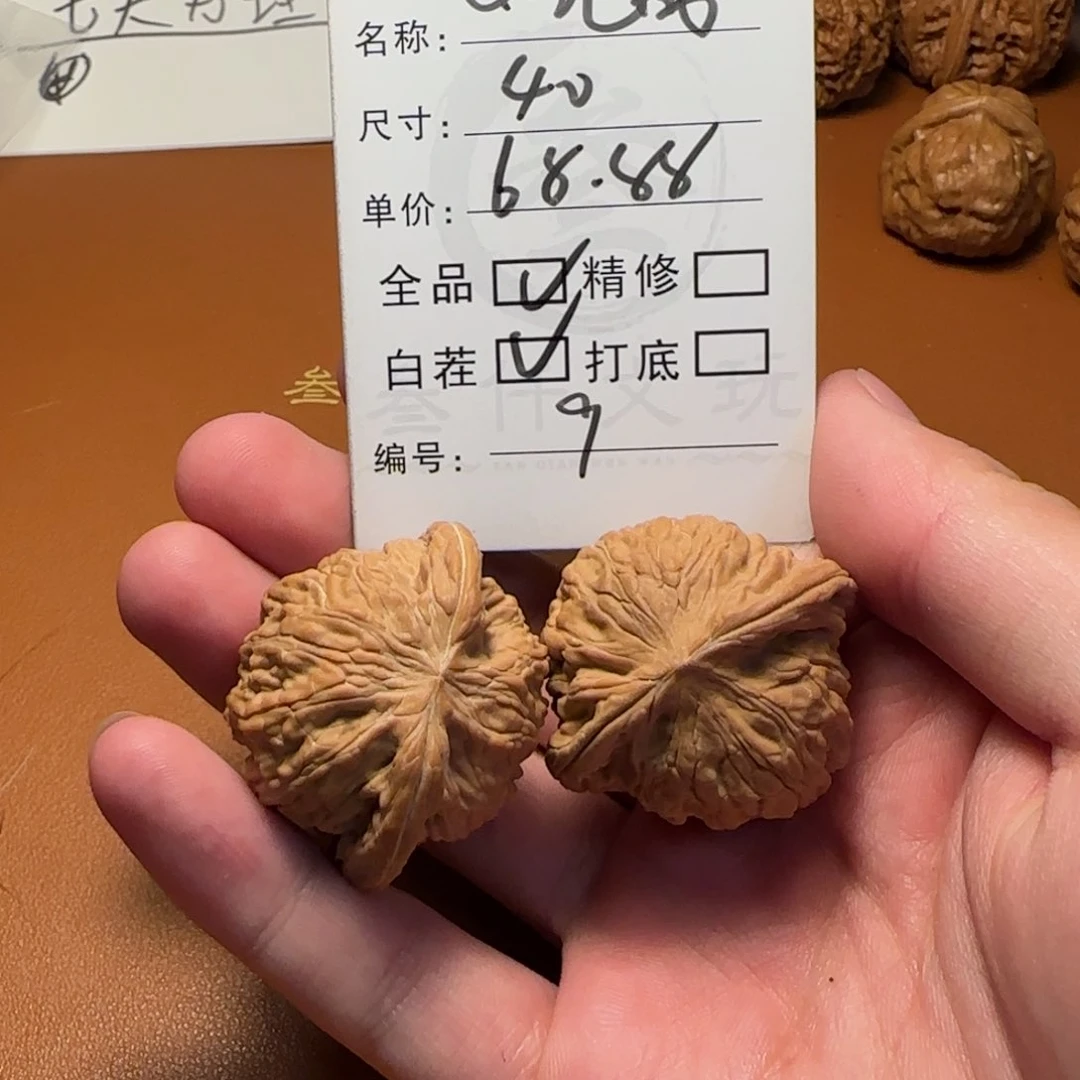 名称:
尺寸: 40
单价: 68.88
全品 ✓ 精修
白茬 ✓ 打底
编号: 9
叁
叁件文玩